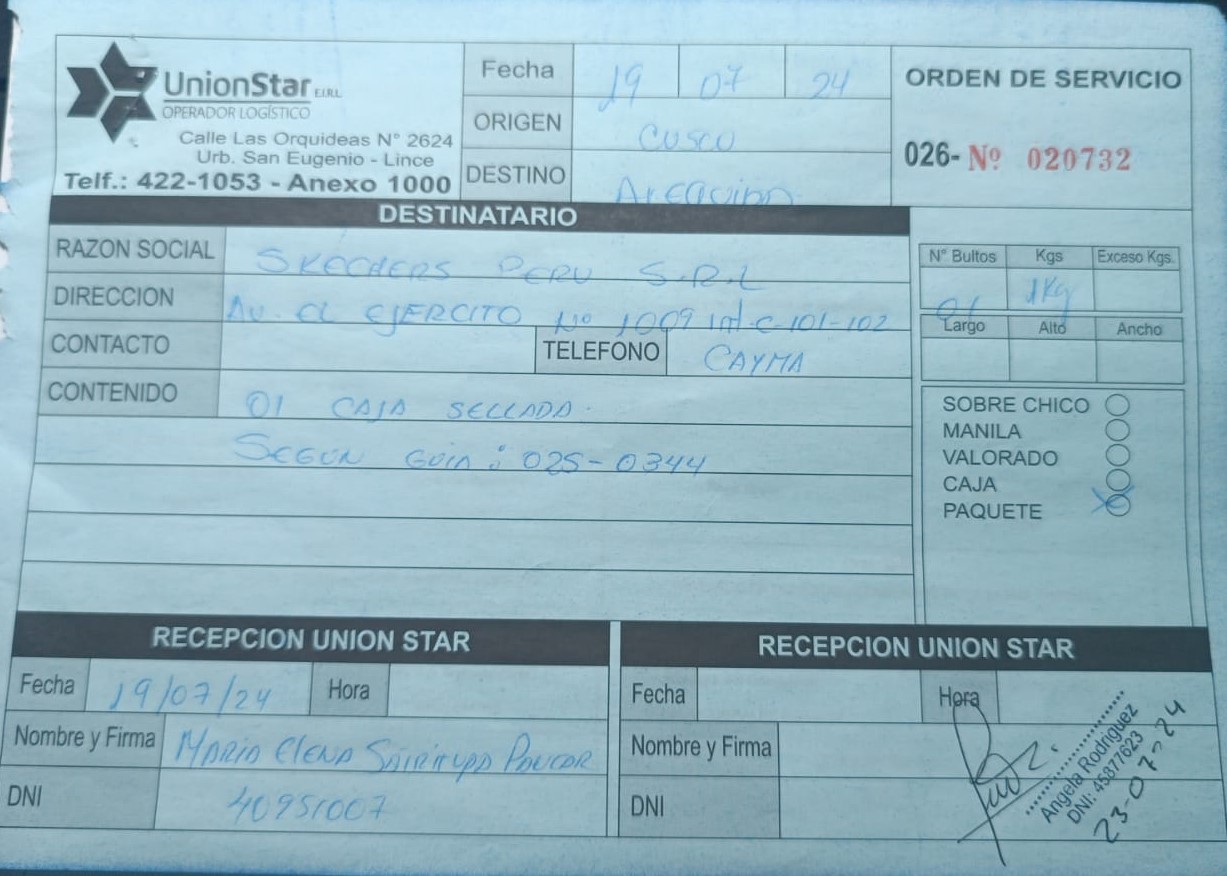 UnionStar E.I.R.L
OPERADOR LOGÍSTICO
Calle Las Orquideas N° 2624
Urb. San Eugenio - Lince
Telf.: 422-1053 - Anexo 1000
Fecha 19 07 24
ORIGEN CUSCO
DESTINO Arequipa
ORDEN DE SERVICIO
026- Nº 020732
DESTINATARIO
RAZON SOCIAL SKECHERS PERU S.R.L
DIRECCION AV. EL EJERCITO Nº 1009 int-C-101-102
CONTACTO TELEFONO CAYMA
CONTENIDO 01 CAJA SELLADA.
SEGUN GUIA: 025-0344
N° Bultos Kgs Exceso Kgs.
01 1Kg
Largo Alto Ancho
SOBRE CHICO
MANILA
VALORADO
CAJA
PAQUETE
RECEPCION UNION STAR
Fecha 19/07/24 Hora
Nombre y Firma MARIA ELENA PAUCAR
DNI 40951007
RECEPCION UNION STAR
Fecha Hora
Nombre y Firma
DNI
Angela Rodriguez
DNI: 45877623
23-07-24